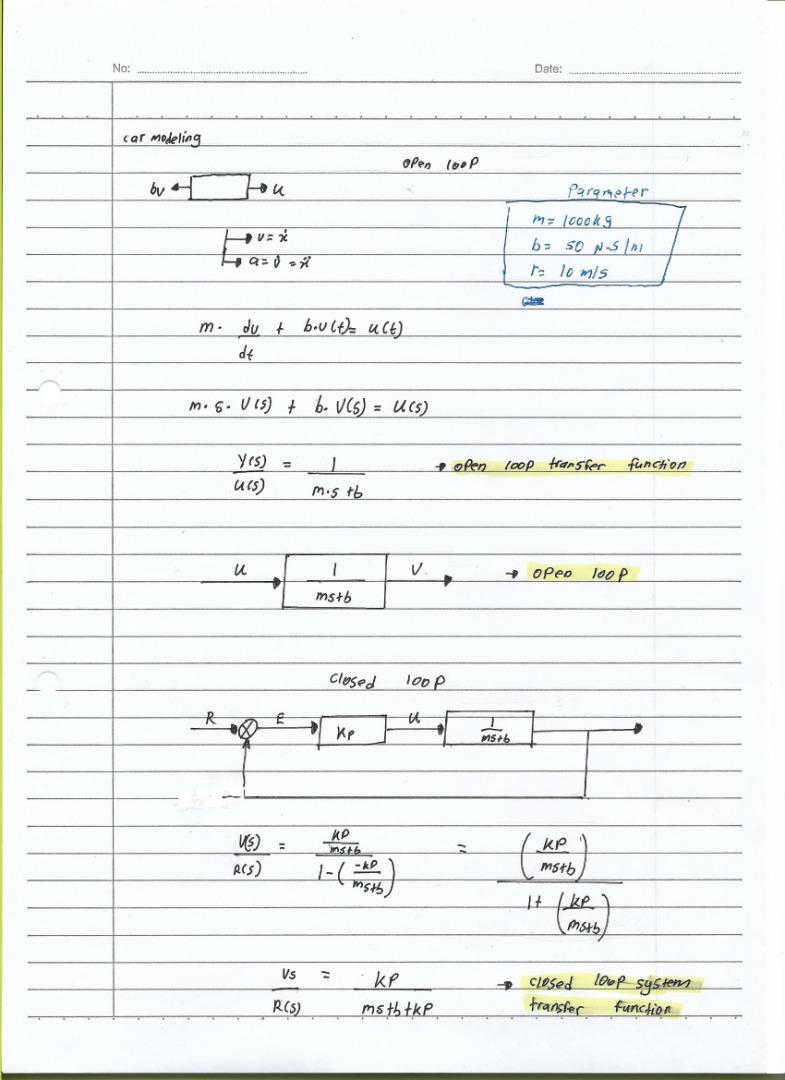 No: Date:
car modeling
open loop
bv u
v = ẋ
a = v̇ = ẍ
Parameter
m = 1000kg
b = 50 N.S/m
r = 10 m/s
m · dv/dt + b·v(t) = u(t)
m · s · V(s) + b · V(s) = U(s)
Y(s)/U(s) = 1/(m·s+b) → open loop transfer function
u 1/(ms+b) V. → open loop
closed loop
R E Kp u 1/(ms+b)
V(s)/R(s) = (kp/(ms+b))/(1-(-kp/(ms+b))) = (kp/(ms+b))/(1+(kp/(ms+b)))
Vs/R(s) = kp/(ms+b+kp) → closed loop system
transfer function